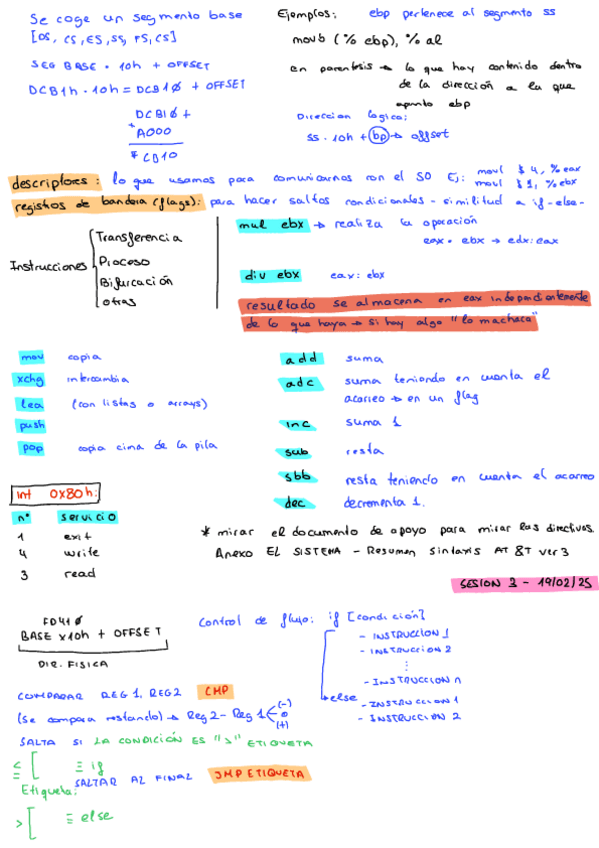 Se coge un segmento base
[DS, CS, ES, SS, FS, CS]
SEG BASE · 10h + OFFSET
DCB1h · 10h = DCB10 + OFFSET
DCB10 +
+ A000
* CB10
Ejemplos: ebp pertenece al segmento ss
movb (% ebp), % al
en parentesis → lo que hay contenido dentro
de la dirección a la que
apunta ebp
Direccion logica:
SS · 10h + bp → offset
descriptores: lo que usamos para comunicarnos con el SO Ej: movl $ 4, % eax
movl $ 1, % ebx
registros de bandera (flags): para hacer saltos condicionales - similitud a if-else-
Instrucciones
Transferencia
Proceso
Bifurcación
otras
mul ebx → realiza la operación
eax · ebx → edx:eax
div ebx eax: ebx
resultado se almacena en eax independientemente
de lo que haya → si hay algo "lo machaca"
mov copia
xchg intercambia
lea (con listas o arrays)
push
pop copia cima de la pila
add suma
adc suma teniendo en cuenta el
acarreo → en un flag
inc suma 1
sub resta
sbb resta teniendo en cuenta el acarreo
dec decrementa 1.
int 0x80h:
nº servicio
1 exit
4 write
3 read
* mirar el documento de apoyo para mirar las directivas.
Anexo EL SISTEMA - Resumen Sintaxis AT&T ver 3
SESION 3 - 19/02/25
FD410
BASE x10h + OFFSET
DIR. FISICA
Control de flujo: if [condición]
- INSTRUCCION 1
- INSTRUCCION 2
⋮
- INSTRUCCION n
else
- INSTRUCCION 1
- INSTRUCCION 2
COMPARAR REG1, REG2 CMP
(Se compara restando) → Reg2 - Reg1 (-)
0
(+)
SALTA SI LA CONDICIÓN ES ">" ETIQUETA
≤ [ ≡ if
SALTAR AL FINAL JMP ETIQUETA
Etiqueta:
> [ ≡ else